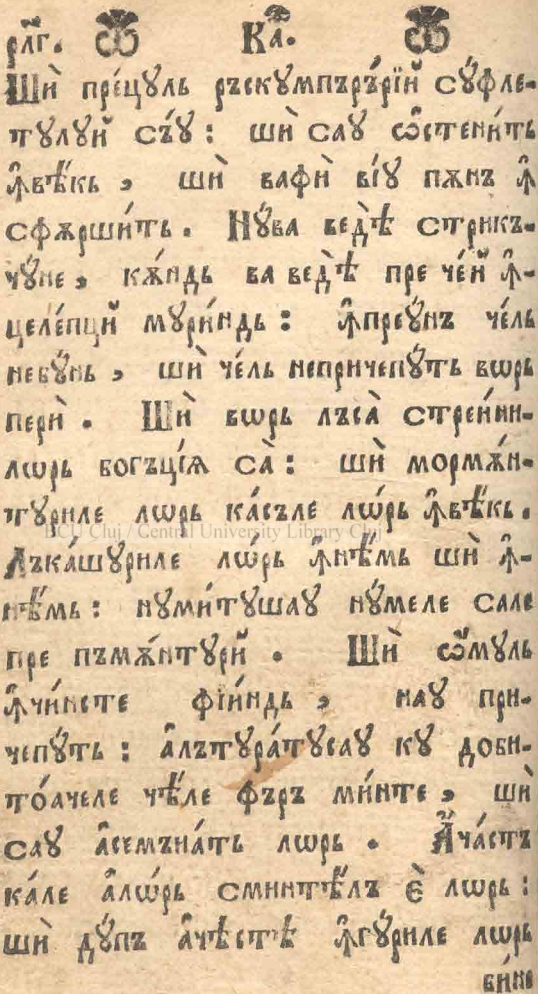 рл҃г. Ѿ Ка҃. Ѿ
Шѝ пре́цꙋль рьскꙋмпърърїй сꙋ́фле-
тꙋлꙋй съ́ꙋ : шѝ саꙋ ѡ҆стени́ть
ꙟ҆вѣ́кь , шѝ вафѝ ві́ꙋ пѫнъ ꙟ҆
сфѫрши́ть . Нꙋ́ва ведѣ̀ стрикъ-
чꙋ́не , кѫ́ндь ва ведѣ̀ пре че́й ꙟ҆-
целе́пцй мꙋри́ндь : ꙟ҆преꙋ́нъ че́ль
небꙋ́нь , шѝ че́ль непричепꙋ́ть вѡрь
перѝ . Шѝ вѡрь лъса̀ стреи́ни-
лѡрь богъці́ѧ са̀ : шѝ мормѫ́н-
тꙋриле лѡрь ка́съле лѡ́рь ꙟ҆вѣ́кь .
BCU Cluj / Central University Library Cluj
Лъка́шꙋриле лѡ́рь ꙟ҆нѣ́мь шѝ ꙟ҆-
нѣ́мь : нꙋми́тꙋшаꙋ нꙋ́меле сале
пре пъмѫ́нтꙋрй . Шѝ ѡ҆́мꙋль
ꙟ҆чи́нсте фіи́ндь , наꙋ при-
чепꙋ́ть : а҆лътꙋра́тꙋсаꙋ кꙋ доби-
то́ачеле чѣ́ле фъръ ми́нте , шѝ
саꙋ а҆семъна́ть лѡрь . А҆ча́стъ
ка́ле а҆лѡ́рь сминтѣ́лъ є҆̀ лѡрь :
шѝ дꙋ́пъ а҆чѣ́стѣ ꙟ҆гꙋ́риле лѡрь
би́не